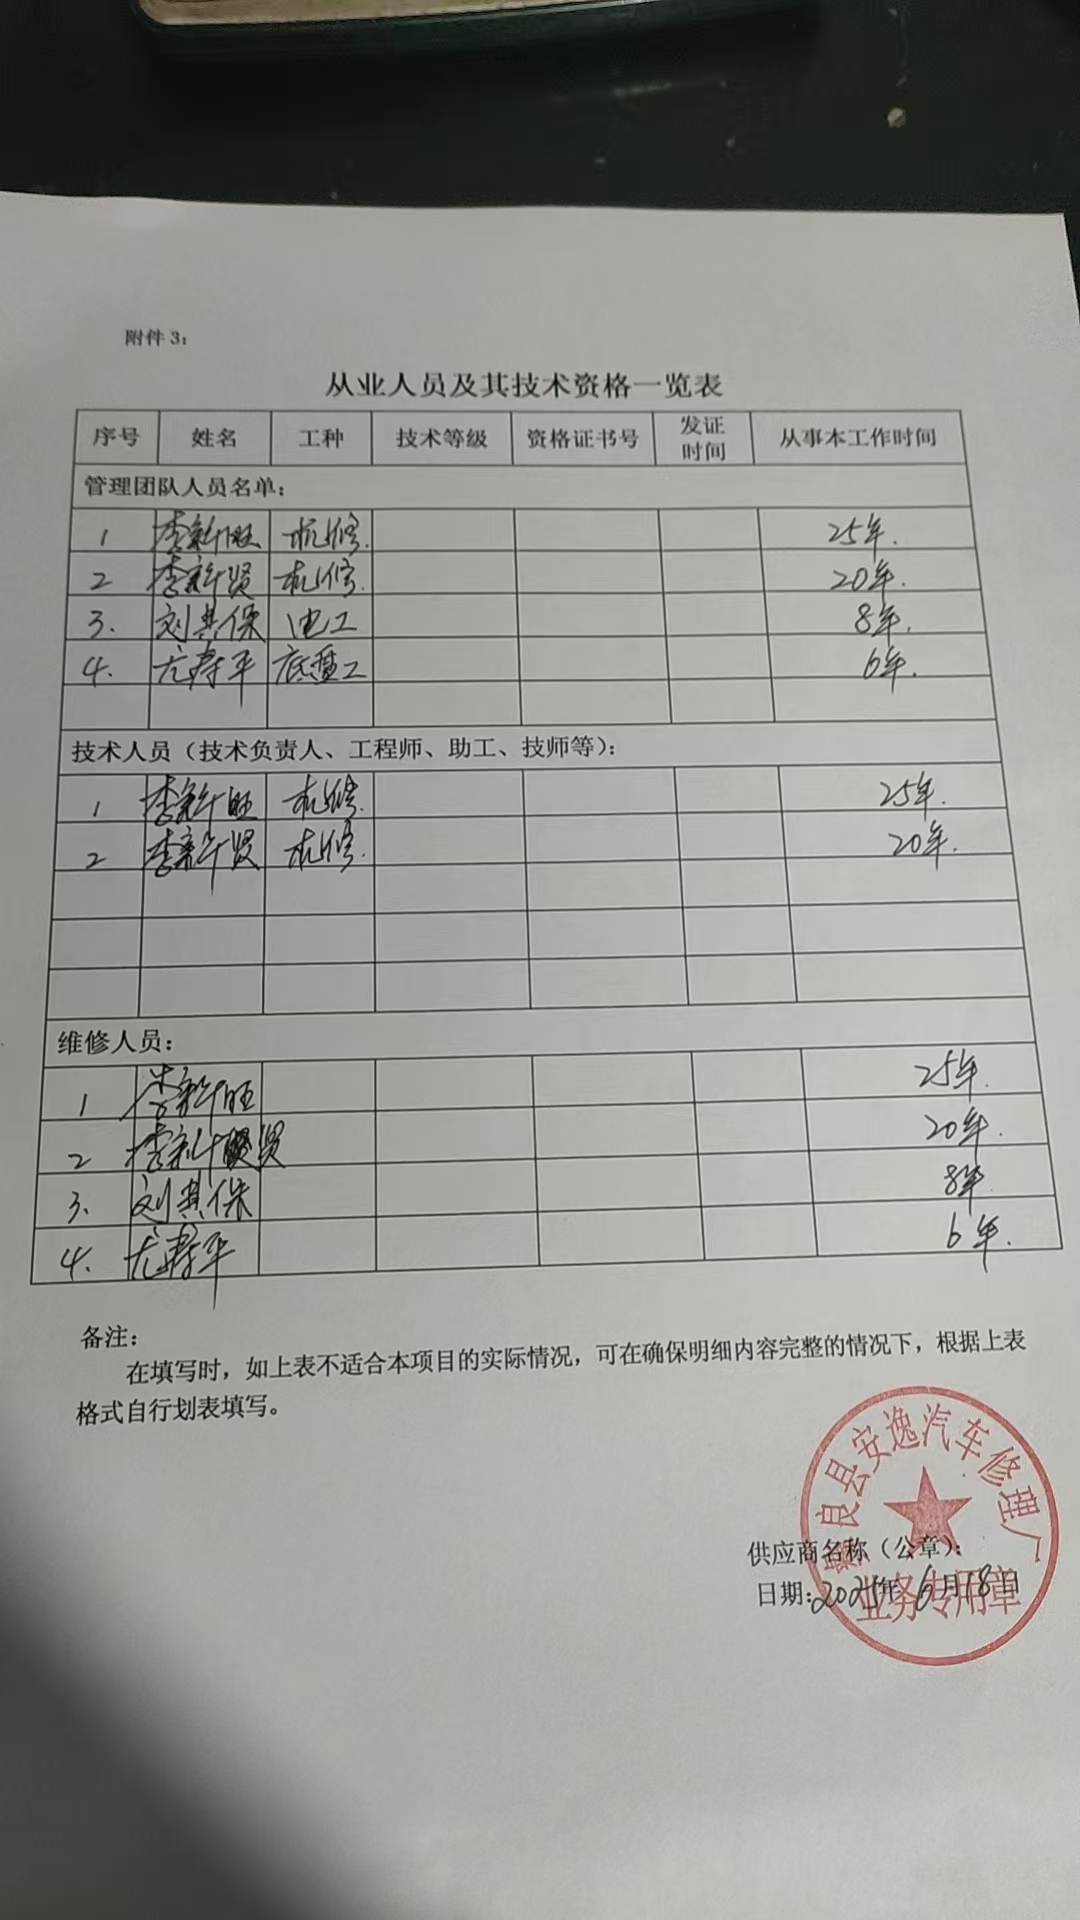 附件 3：
从业人员及其技术资格一览表
序号 姓名 工种 技术等级 资格证书号 发证时间 从事本工作时间
管理团队人员名单：
1 李新旺 机修. 25年.
2 李新贤 机修. 20年.
3. 刘其保 电工 8年.
4. 尤寿平 底盘工 6年.
技术人员（技术负责人、工程师、助工、技师等）：
1 李新旺 机修. 25年.
2 李新贤 机修. 20年.
维修人员：
1 李新旺 25年.
2 李新贤 20年.
3. 刘其保 8年
4. 尤寿平 6年.
备注：
在填写时，如上表不适合本项目的实际情况，可在确保明细内容完整的情况下，根据上表
格式自行划表填写。
良县安逸汽车修理厂
供应商名称（公章）：
日期：2025年6月18日
业务专用章